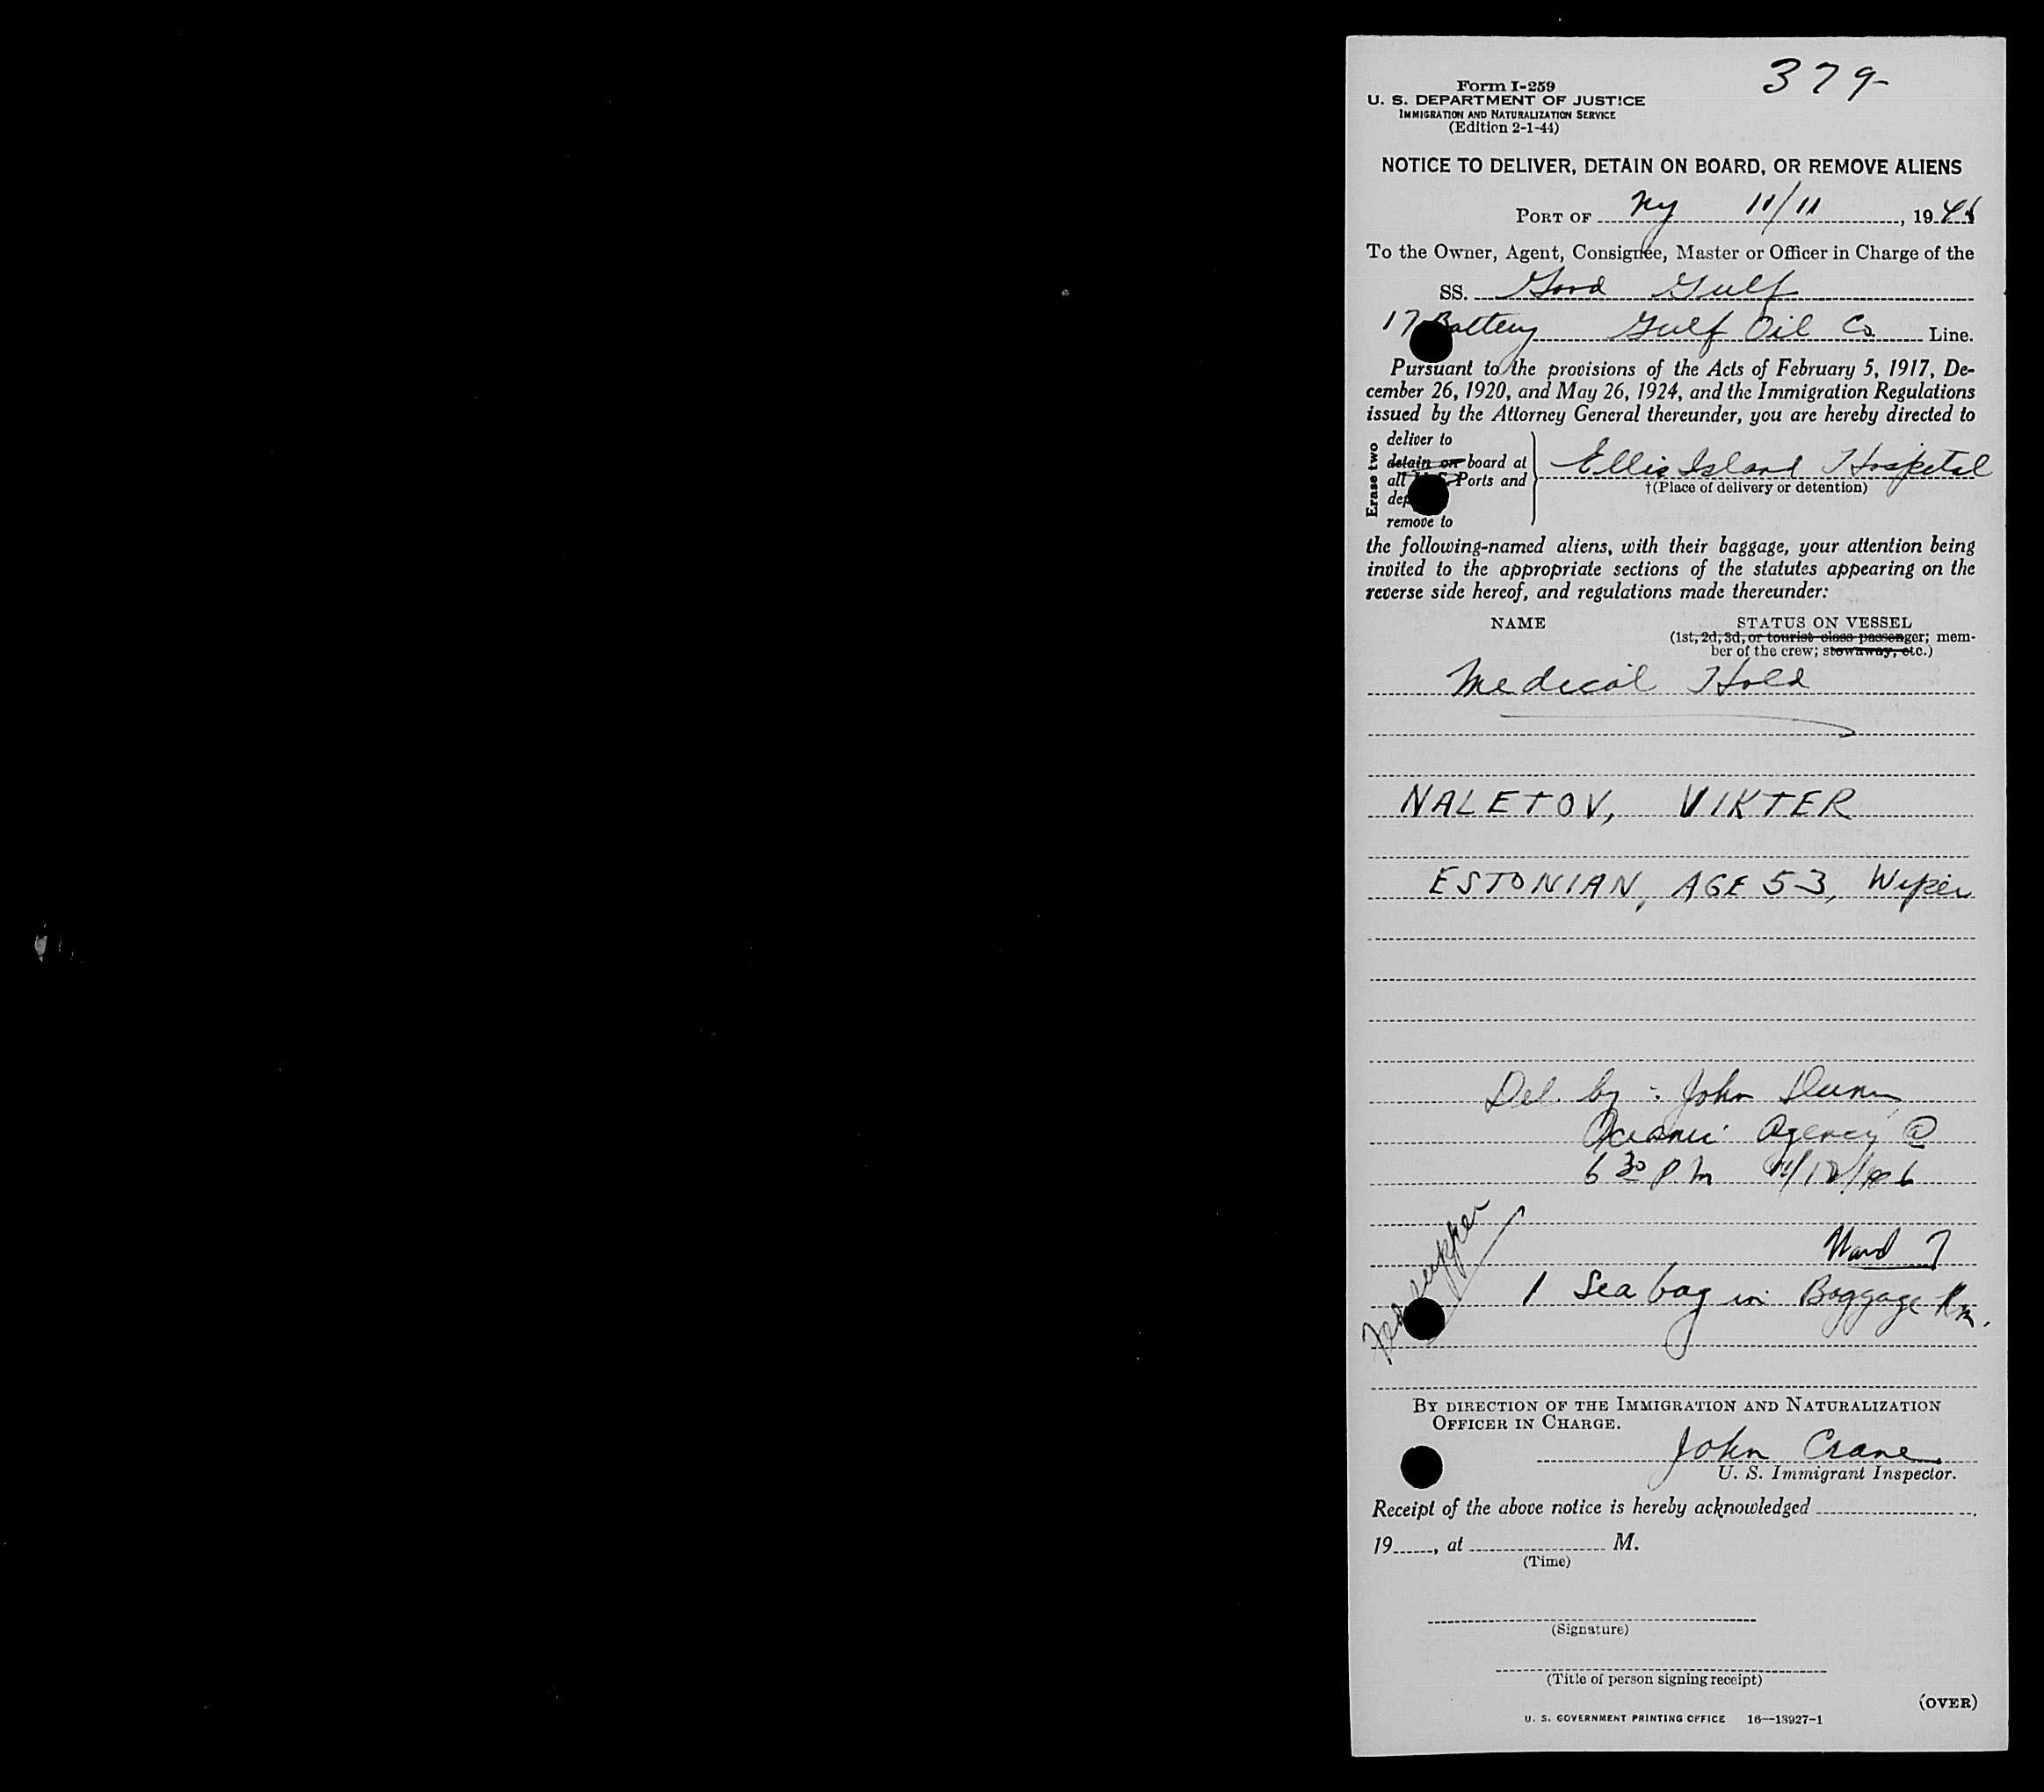 379
Form I-259
U. S. DEPARTMENT OF JUSTICE
IMMIGRATION AND NATURALIZATION SERVICE
(Edition 2-1-44)
NOTICE TO DELIVER, DETAIN ON BOARD, OR REMOVE ALIENS
PORT OF NY 11/11, 1946
To the Owner, Agent, Consignee, Master or Officer in Charge of the
SS. Good Gulf
17 Battery Gulf Oil Co. Line.
Pursuant to the provisions of the Acts of February 5, 1917, De-
cember 26, 1920, and May 26, 1924, and the Immigration Regulations
issued by the Attorney General thereunder, you are hereby directed to
Erase two
deliver to
detain on board at
all U.S. Ports and
remove to
Ellis Island Hospital
†(Place of delivery or detention)
the following-named aliens, with their baggage, your attention being
invited to the appropriate sections of the statutes appearing on the
reverse side hereof, and regulations made thereunder:
NAME STATUS ON VESSEL
(1st, 2d, 3d, or tourist class passenger; mem-
ber of the crew; stowaway, etc.)
Medical Hold
NALETOV, VIKTER
ESTONIAN, AGE 53, Wiper
Del. by: John Dunn
Oceanic Agency @
6 30 P.M 11/12/46
Ward 7
supper
1 Sea bag in Baggage Rm.
BY DIRECTION OF THE IMMIGRATION AND NATURALIZATION
OFFICER IN CHARGE.
John Crane
U. S. Immigrant Inspector.
Receipt of the above notice is hereby acknowledged
19, at M.
(Time)
(Signature)
(Title of person signing receipt)
(OVER)
U. S. GOVERNMENT PRINTING OFFICE 16—13927-1